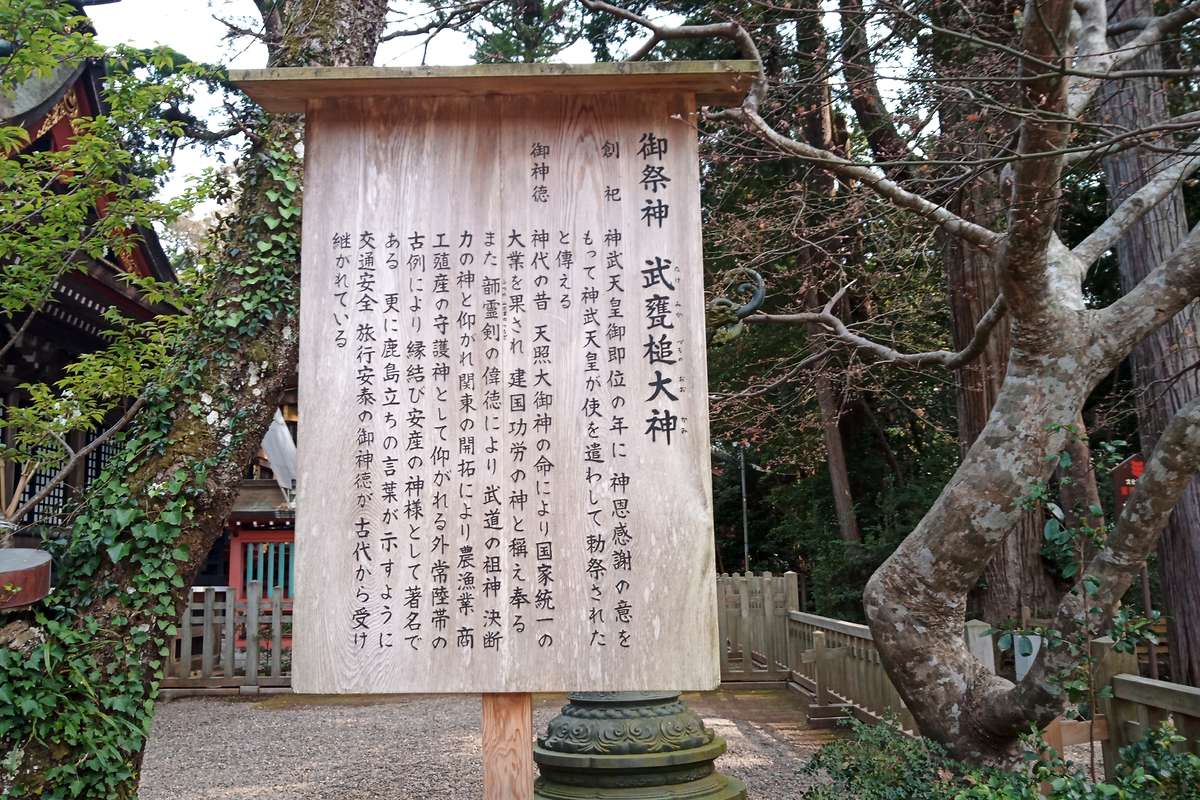 御祭神 武甕槌大神
創祀 神武天皇御即位の年に 神恩感謝の意を
もって神武天皇が使を遣わして勅祭された
と傳える
御神徳 神代の昔 天照大御神の命により国家統一の
大業を果され 建国功労の神と稱え奉る
また 韴霊剣の偉徳により 武道の祖神 決断
力の神と仰がれ関東の開拓により農漁業 商
工殖産の守護神として仰がれる外常陸帯の
古例により縁結び安産の神様として著名で
ある 更に鹿島立ちの言葉が示すように
交通安全 旅行安泰の御神徳が 古代から受け
継がれている